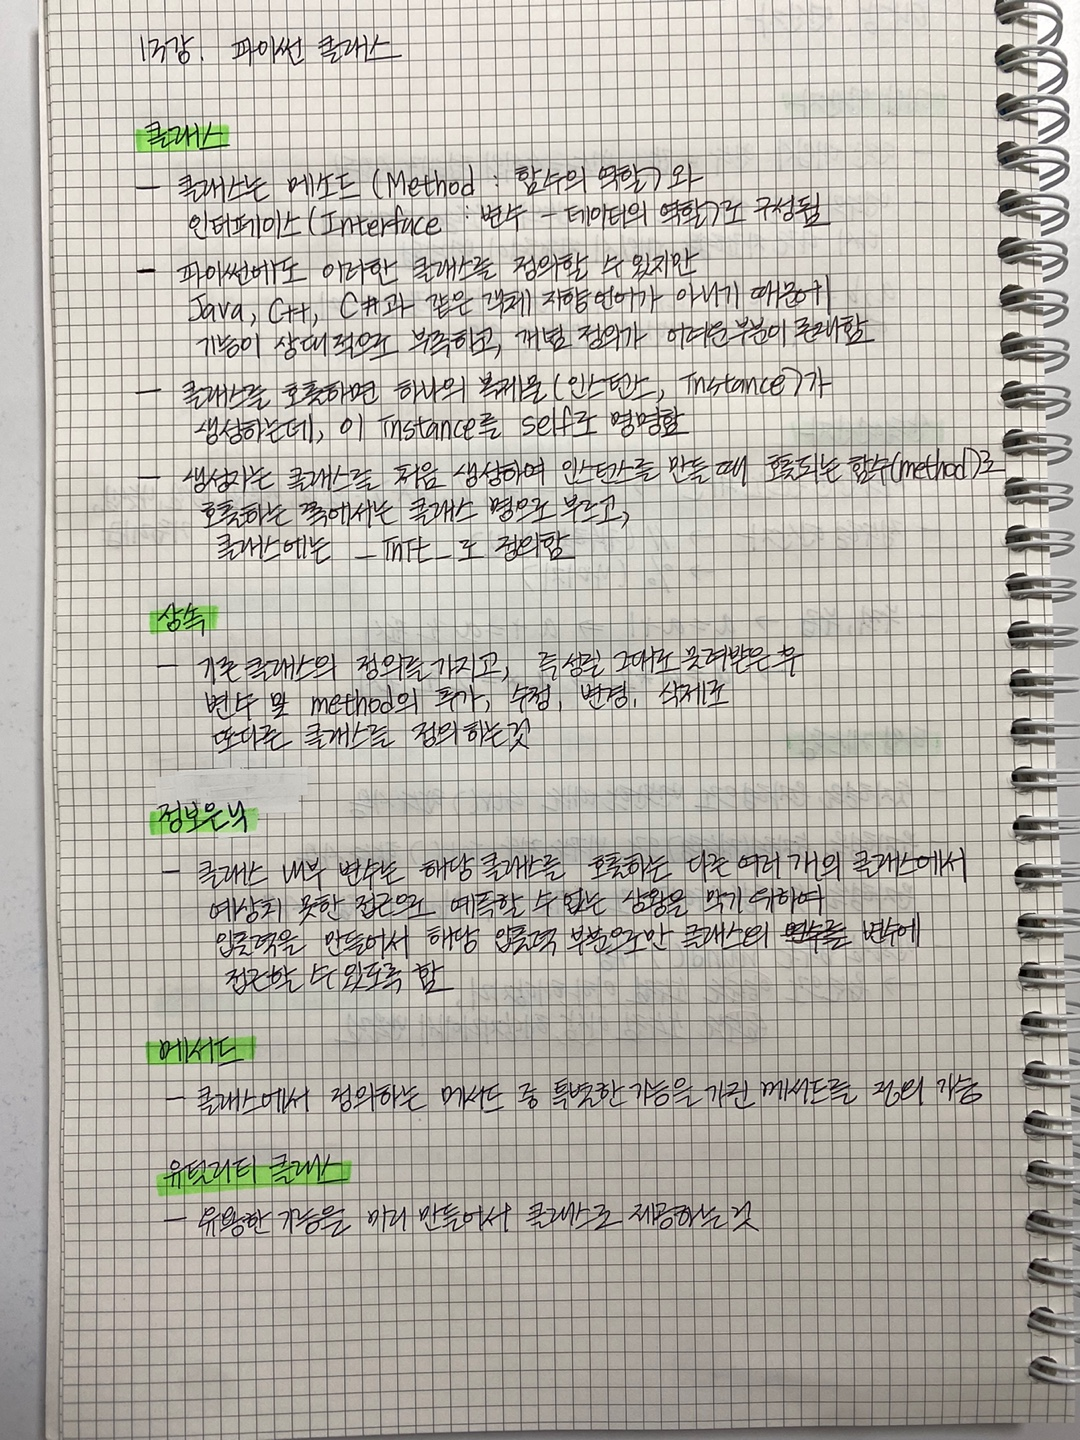 13강. 파이썬 클래스
클래스
- 클래스는 메소드 (Method : 함수의 역할)와
인터페이스 (Interface : 변수 - 데이터의 역할)로 구성됨
- 파이썬에도 이러한 클래스를 정의할 수 있지만
Java, C++, C#과 같은 객체 지향 언어가 아니기 때문에
기능이 상대적으로 부족하고, 개별 정의가 어려운 부분이 존재함
- 클래스를 호출하면 하나의 복제물(인스턴스, Instance)가
생성하는데, 이 Instance를 self로 명명함
- 생성자는 클래스를 처음 생성하여 인스턴스를 만들 때 호출되는 함수(method)로
호출하는 쪽에서는 클래스 명으로 부르고,
클래스에는 _Init_로 정의함
상속
- 기존 클래스의 정의를 가지고, 특성을 그대로 물려받은 후
변수 및 method의 추가, 수정, 변경, 삭제로
또다른 클래스를 정의하는것
정보은닉
- 클래스 내부 변수는 해당 클래스를 호출하는 다른 여러 개의 클래스에서
예상치 못한 접근으로 예측할 수 없는 상황을 막기 위하여
입출력을 만들어서 해당 입출력 부분으로만 클래스의 변수를 변수에
접근할 수 있도록 함
메서드
- 클래스에서 정의하는 메서드 중 특별한 기능을 가진 메서드를 정의 가능
유틸리티 클래스
- 유용한 기능을 미리 만들어서 클래스로 제공하는 것